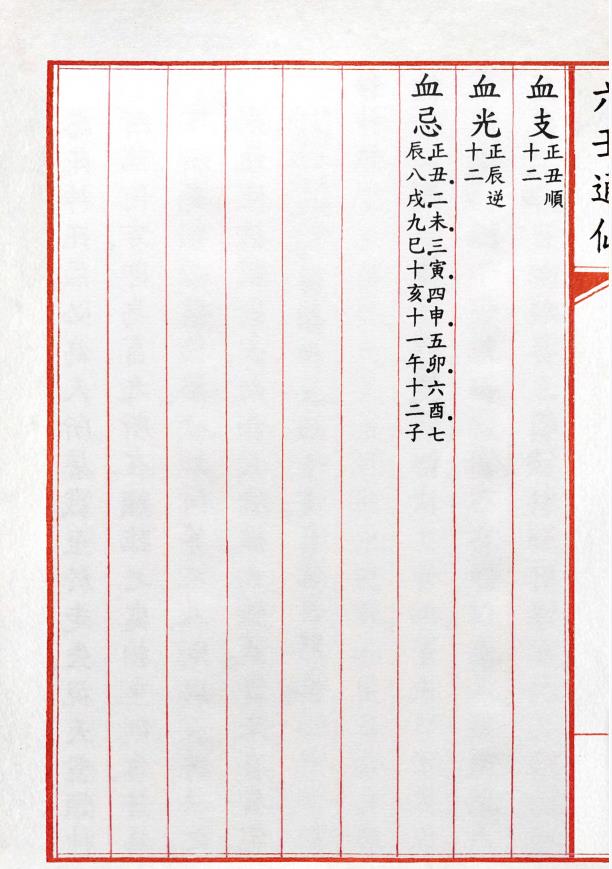 六壬通
血支 正丑順
十二
血光 正辰逆
十二
血忌 正丑二未三寅四申五卯六酉七
辰八戌九巳十亥十一午十二子